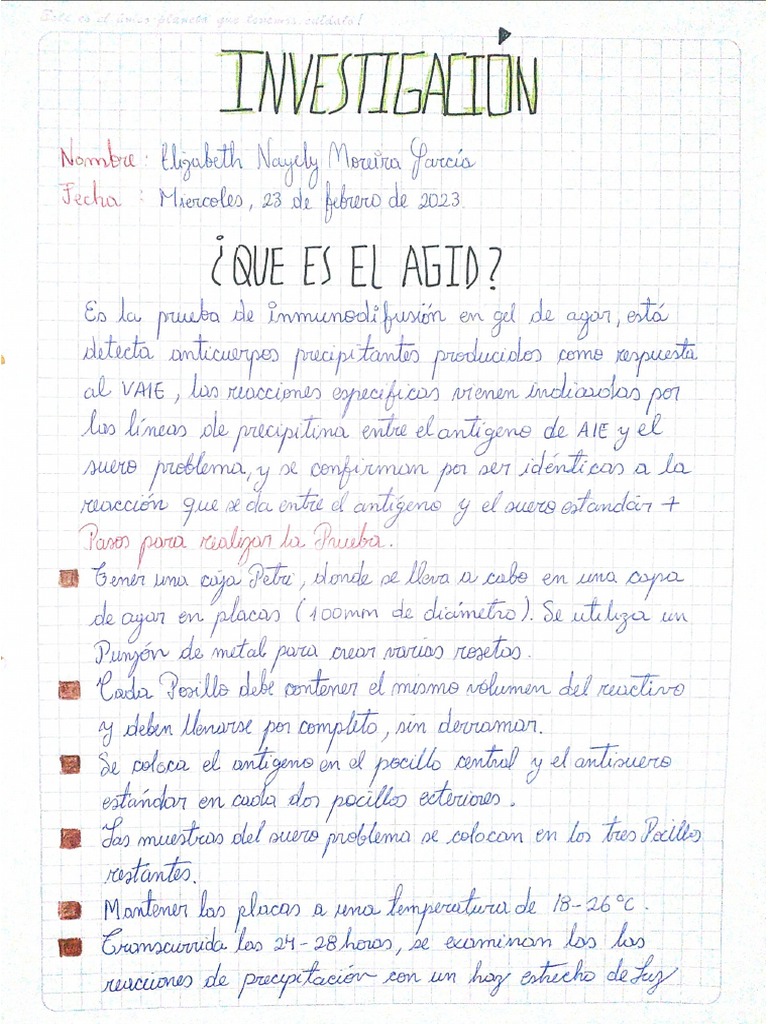 Este es el único planeta que tenemos cuídalo!
INVESTIGACIÓN
Nombre: Elizabeth Nayely Moreira García
Fecha : Miercoles, 23 de febrero de 2023.
¿QUE ES EL AGID?
Es la prueba de inmunodifusión en gel de agar, está
detecta anticuerpos precipitantes producidos como respuesta
al VAIE, las reacciones especificas vienen indicadas por
las líneas de precipitina entre el antigeno de AIE y el
suero problema, y se confirman por ser idénticas a la
reacción que se da entre el antígeno y el suero estandar +
Pasos para realizar la Prueba.
Tener una caja Petri, donde se lleva a cabo en una capa
de agar en placas (100mm de diámetro). Se utiliza un
Punzón de metal para crear varias rosetas.
Cada Posillo debe contener el mismo volumen del reactivo
y deben llenarse por completo, sin derramar.
Se coloca el antigeno en el pocillo central y el antisuero
estándar en cada dos pocillos exteriores.
Las muestras del suero problema se colocan en los tres Pocillos
restantes.
Mantener las placas a una temperatura de 18-26°C.
Transcurrida las 24-28 horas, se examinan las las
reacciones de precipitación con un haz estrecho de Luz